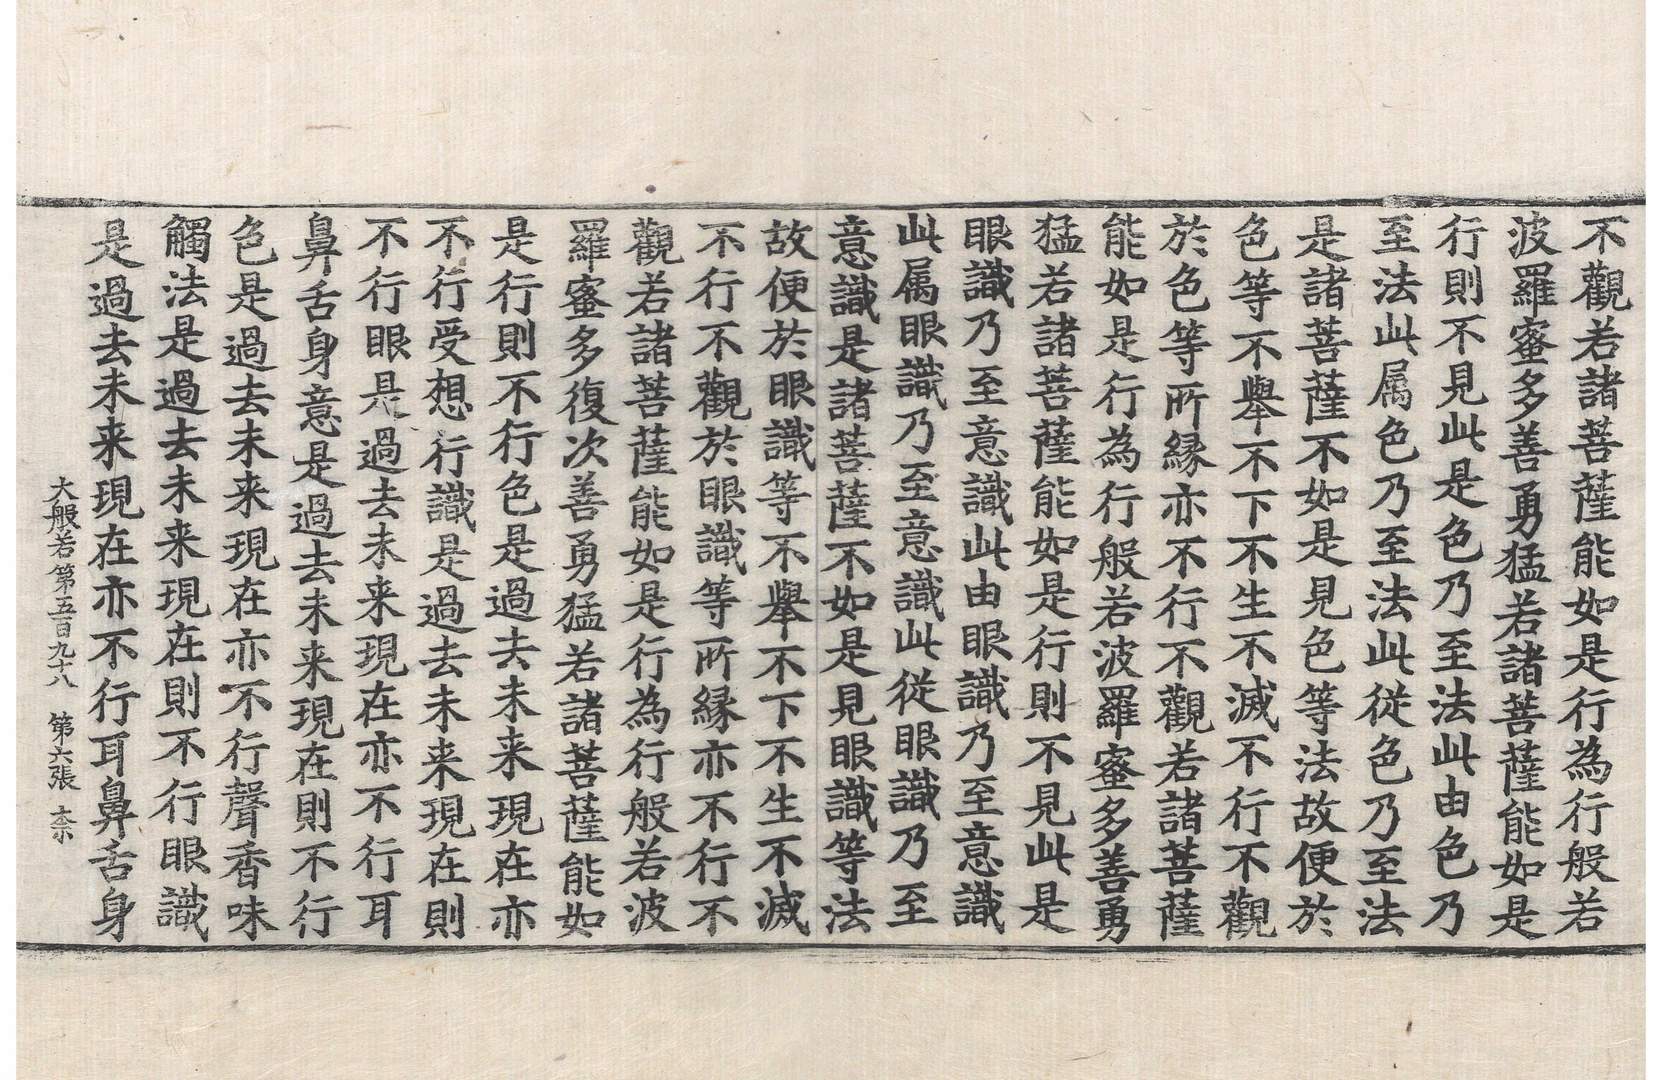 不觀若諸菩薩能如是行為行般若
波羅蜜多善勇猛若諸菩薩能如是
行則不見此是色乃至法此由色乃
至法此属色乃至法此從色乃至法
是諸菩薩不如是見色等法故便於
色等不舉不下不生不滅不行不觀
於色等所縁亦不行不觀若諸菩薩
能如是行為行般若波羅蜜多善勇
猛若諸菩薩能如是行則不見此是
眼識乃至意識此由眼識乃至意識
此属眼識乃至意識此從眼識乃至
意識是諸菩薩不如是見眼識等法
故便於眼識等不舉不下不生不滅
不行不觀於眼識等所縁亦不行不
觀若諸菩薩能如是行為行般若波
羅蜜多復次善勇猛若諸菩薩能如
是行則不行色是過去未来現在亦
不行受想行識是過去未来現在則
不行眼是過去未来現在亦不行耳
鼻舌身意是過去未来現在則不行
色是過去未来現在亦不行聲香味
觸法是過去未来現在則不行眼識
是過去未来現在亦不行耳鼻舌身
大般若第五百九十八 第六張 柰